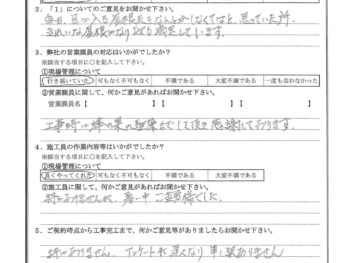 2．「1」についてのご意見をお聞かせ下さい。
毎日、目に入る屋根をなんとかしなくてはと、思っていた所、
きれいな屋根になり大変満足しています。
3．弊社の営業課員の対応はいかがでしたか？
※該当する項目に○を記入して下さい。
①現場管理について
行き届いていた 可もなく不可もなく 不満である 大変不満である 一度も会わなかった
②営業課員に関して、何かご意見があればお聞かせ下さい。
営業課員名【 】【 】【 】
工事時に蜂の巣の駆除までして頂き感謝しております。
4．施工員の作業内容等はいかがでしたか？
※該当する項目に○を記入して下さい。
①現場管理について
良くやってくれた 可もなく不可もなく 不満である 大変不満である
②施工員に関して、何かご意見があればお聞かせ下さい。
特にありませんが、暑い中ご苦労様でした。
5．ご契約時点から工事完工まで、何かご意見等がありましたらお聞かせ下さい。
特にありません。アンケートが遅くなり申し訳ありません